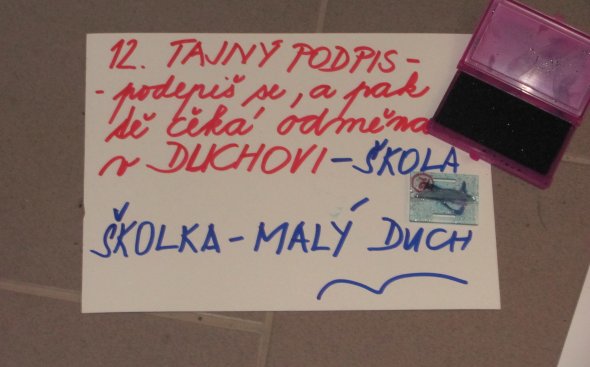 12. TAJNÝ PODPIS-
- podepiš se, a pak
tě čeká odměna
v DUCHOVI - ŠKOLA
ŠKOLKA - MALÝ DUCH